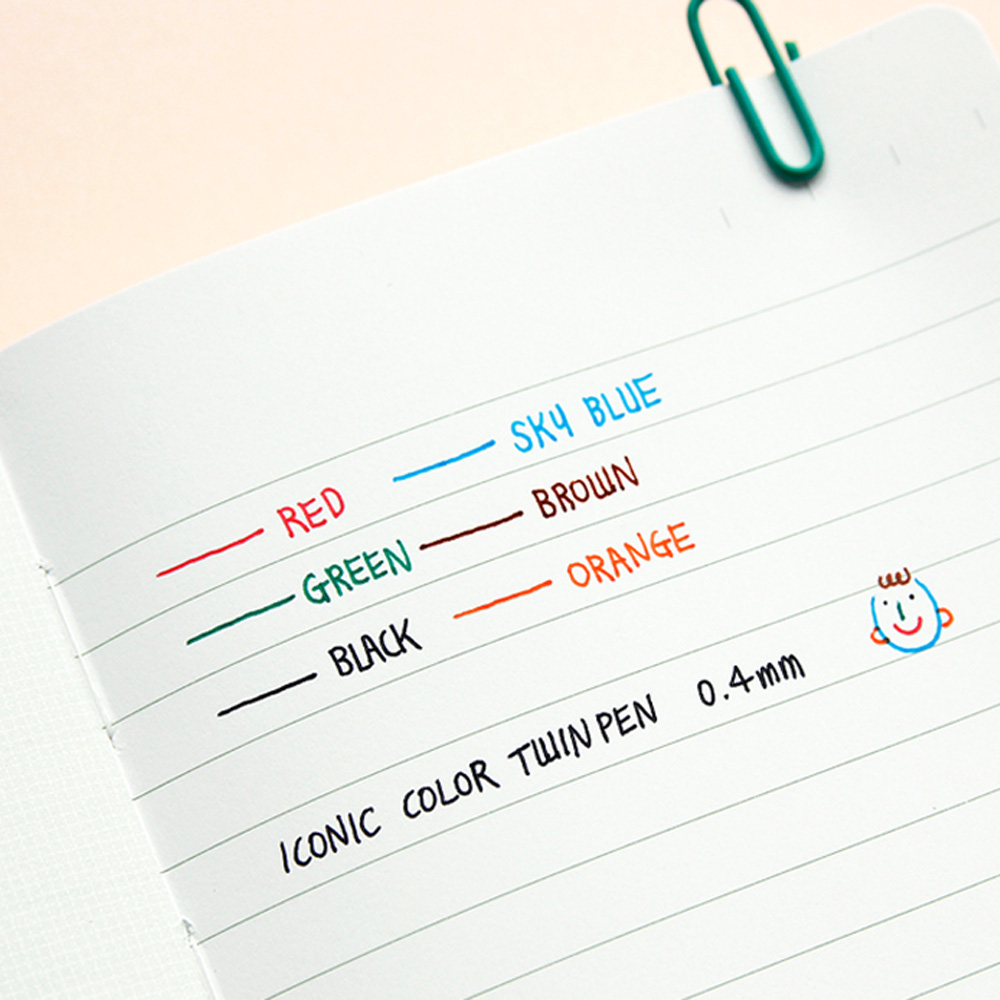 RED SKY BLUE
GREEN BROWN
BLACK ORANGE
ICONIC COLOR TWIN PEN 0.4mm